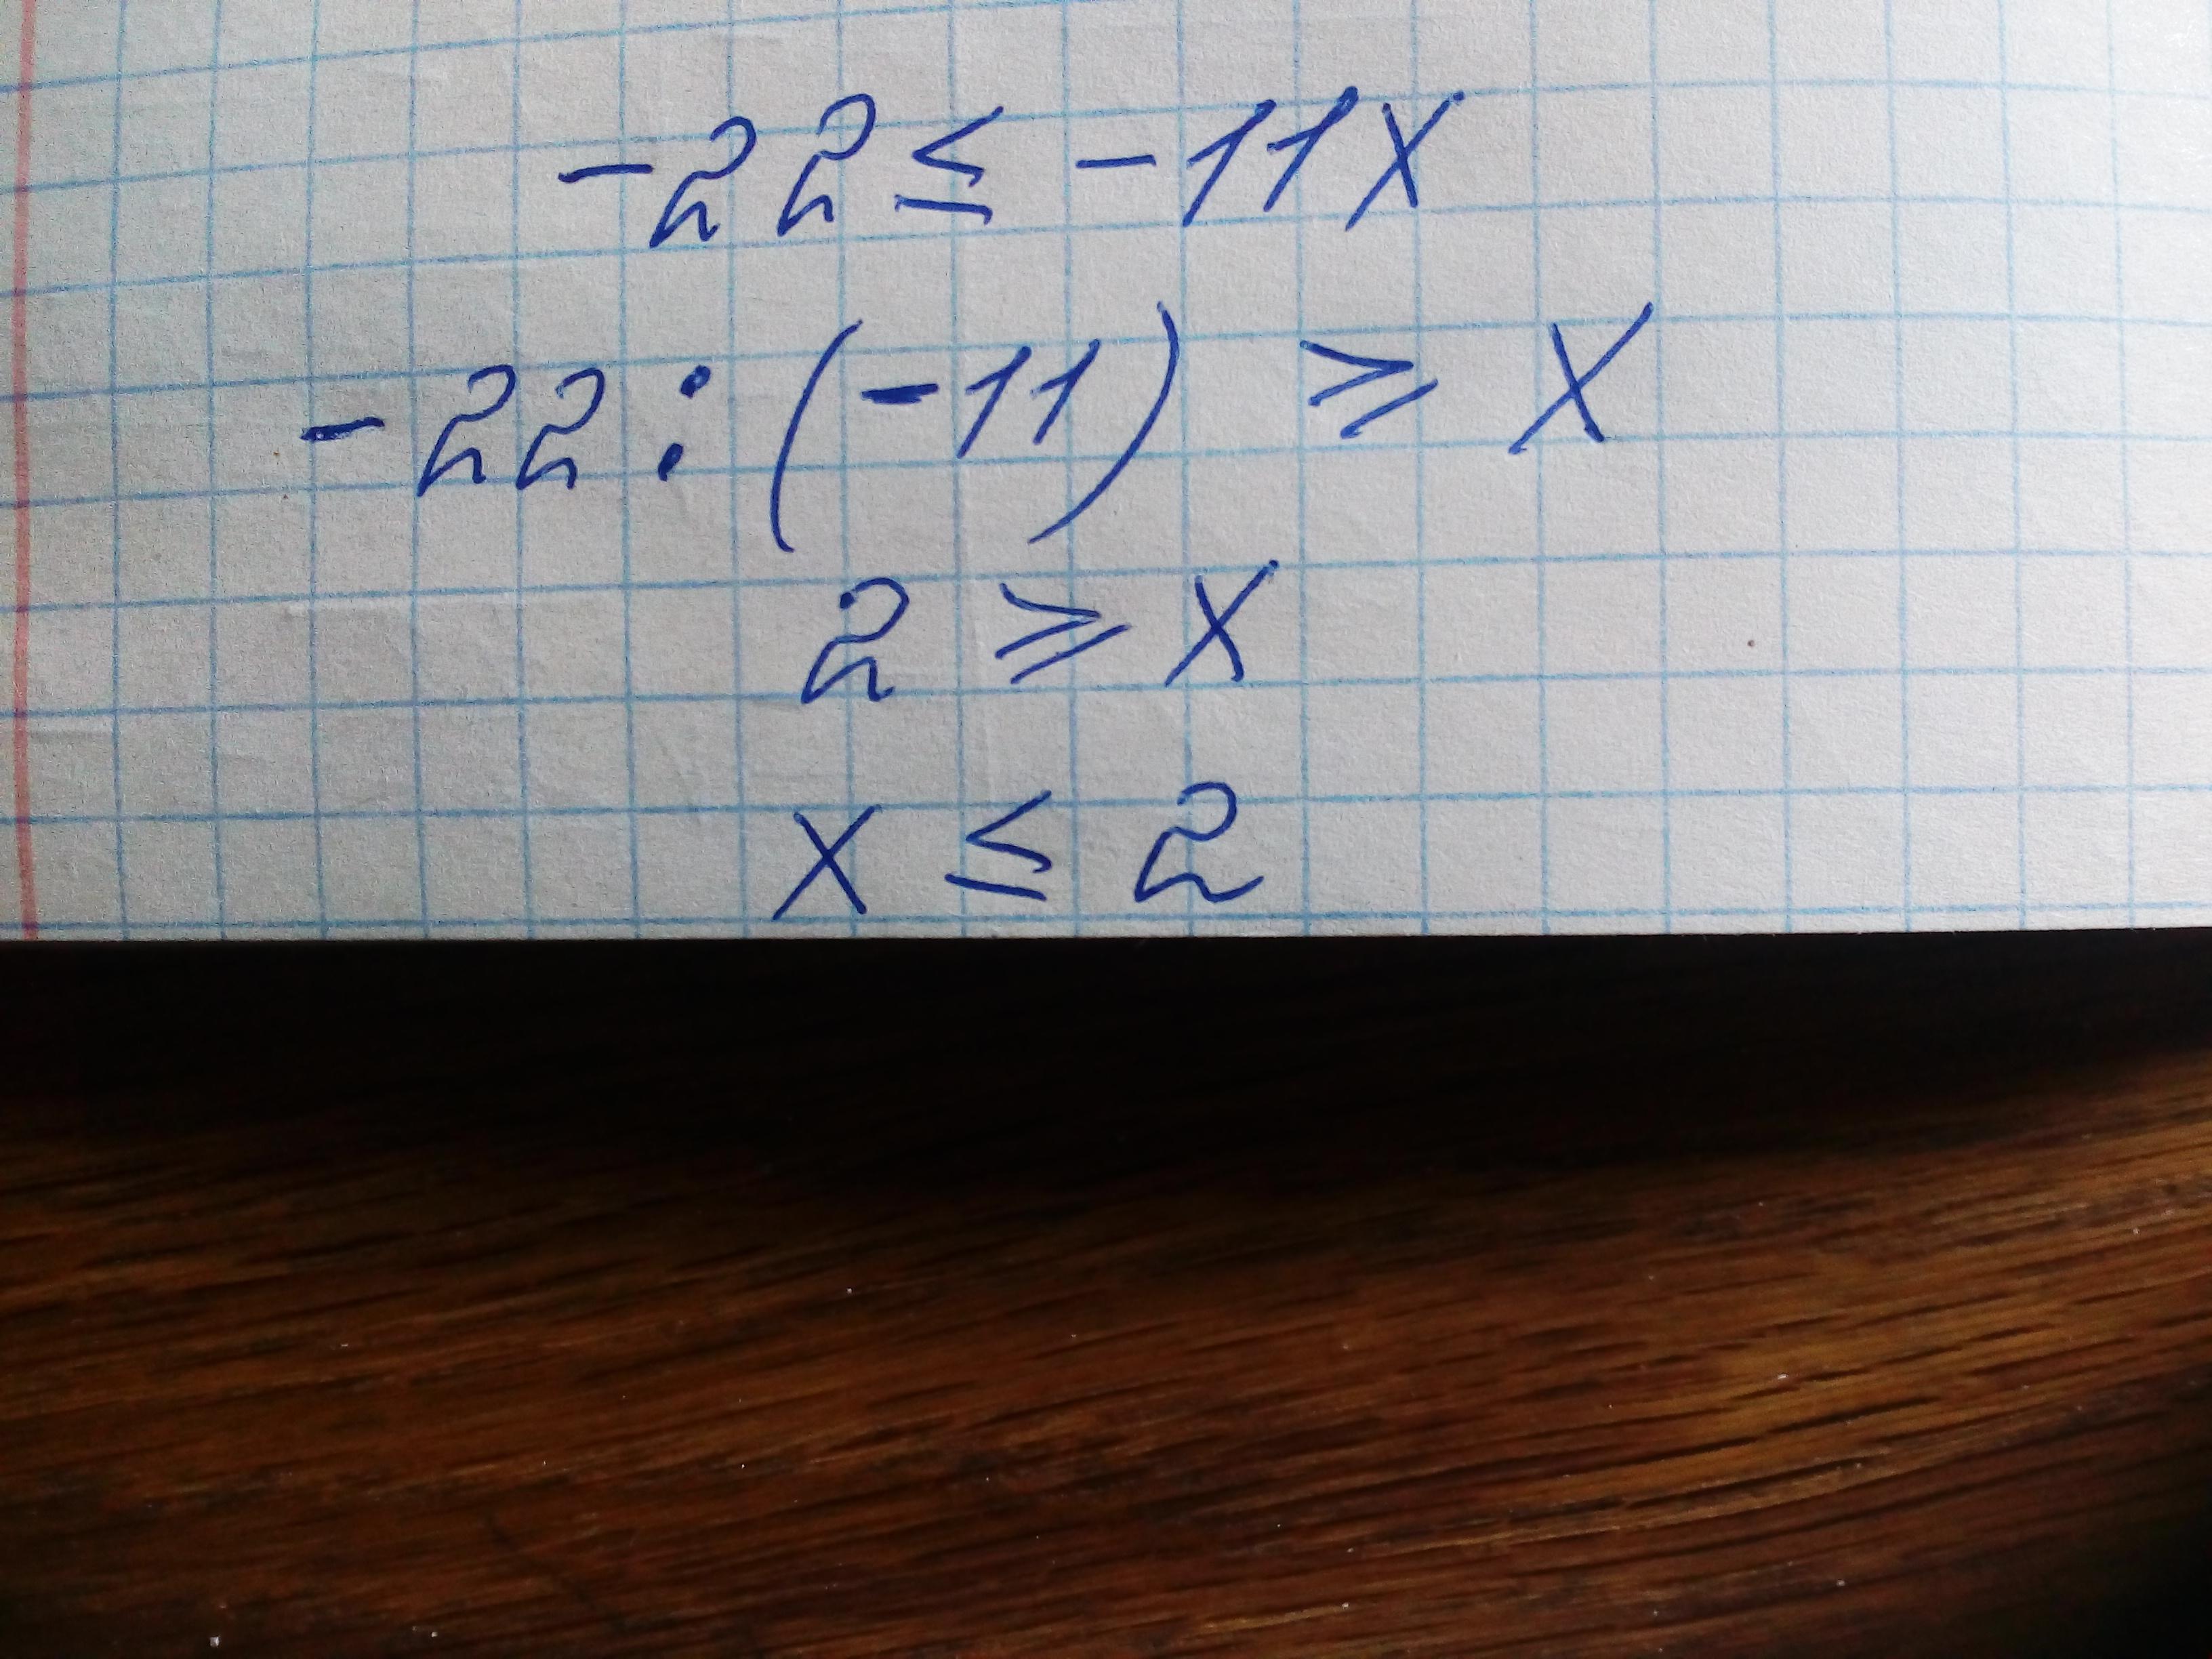 -22 ≤ -11x
-22 : (-11) ⩾ x
2 ⩾ x
x ≤ 2